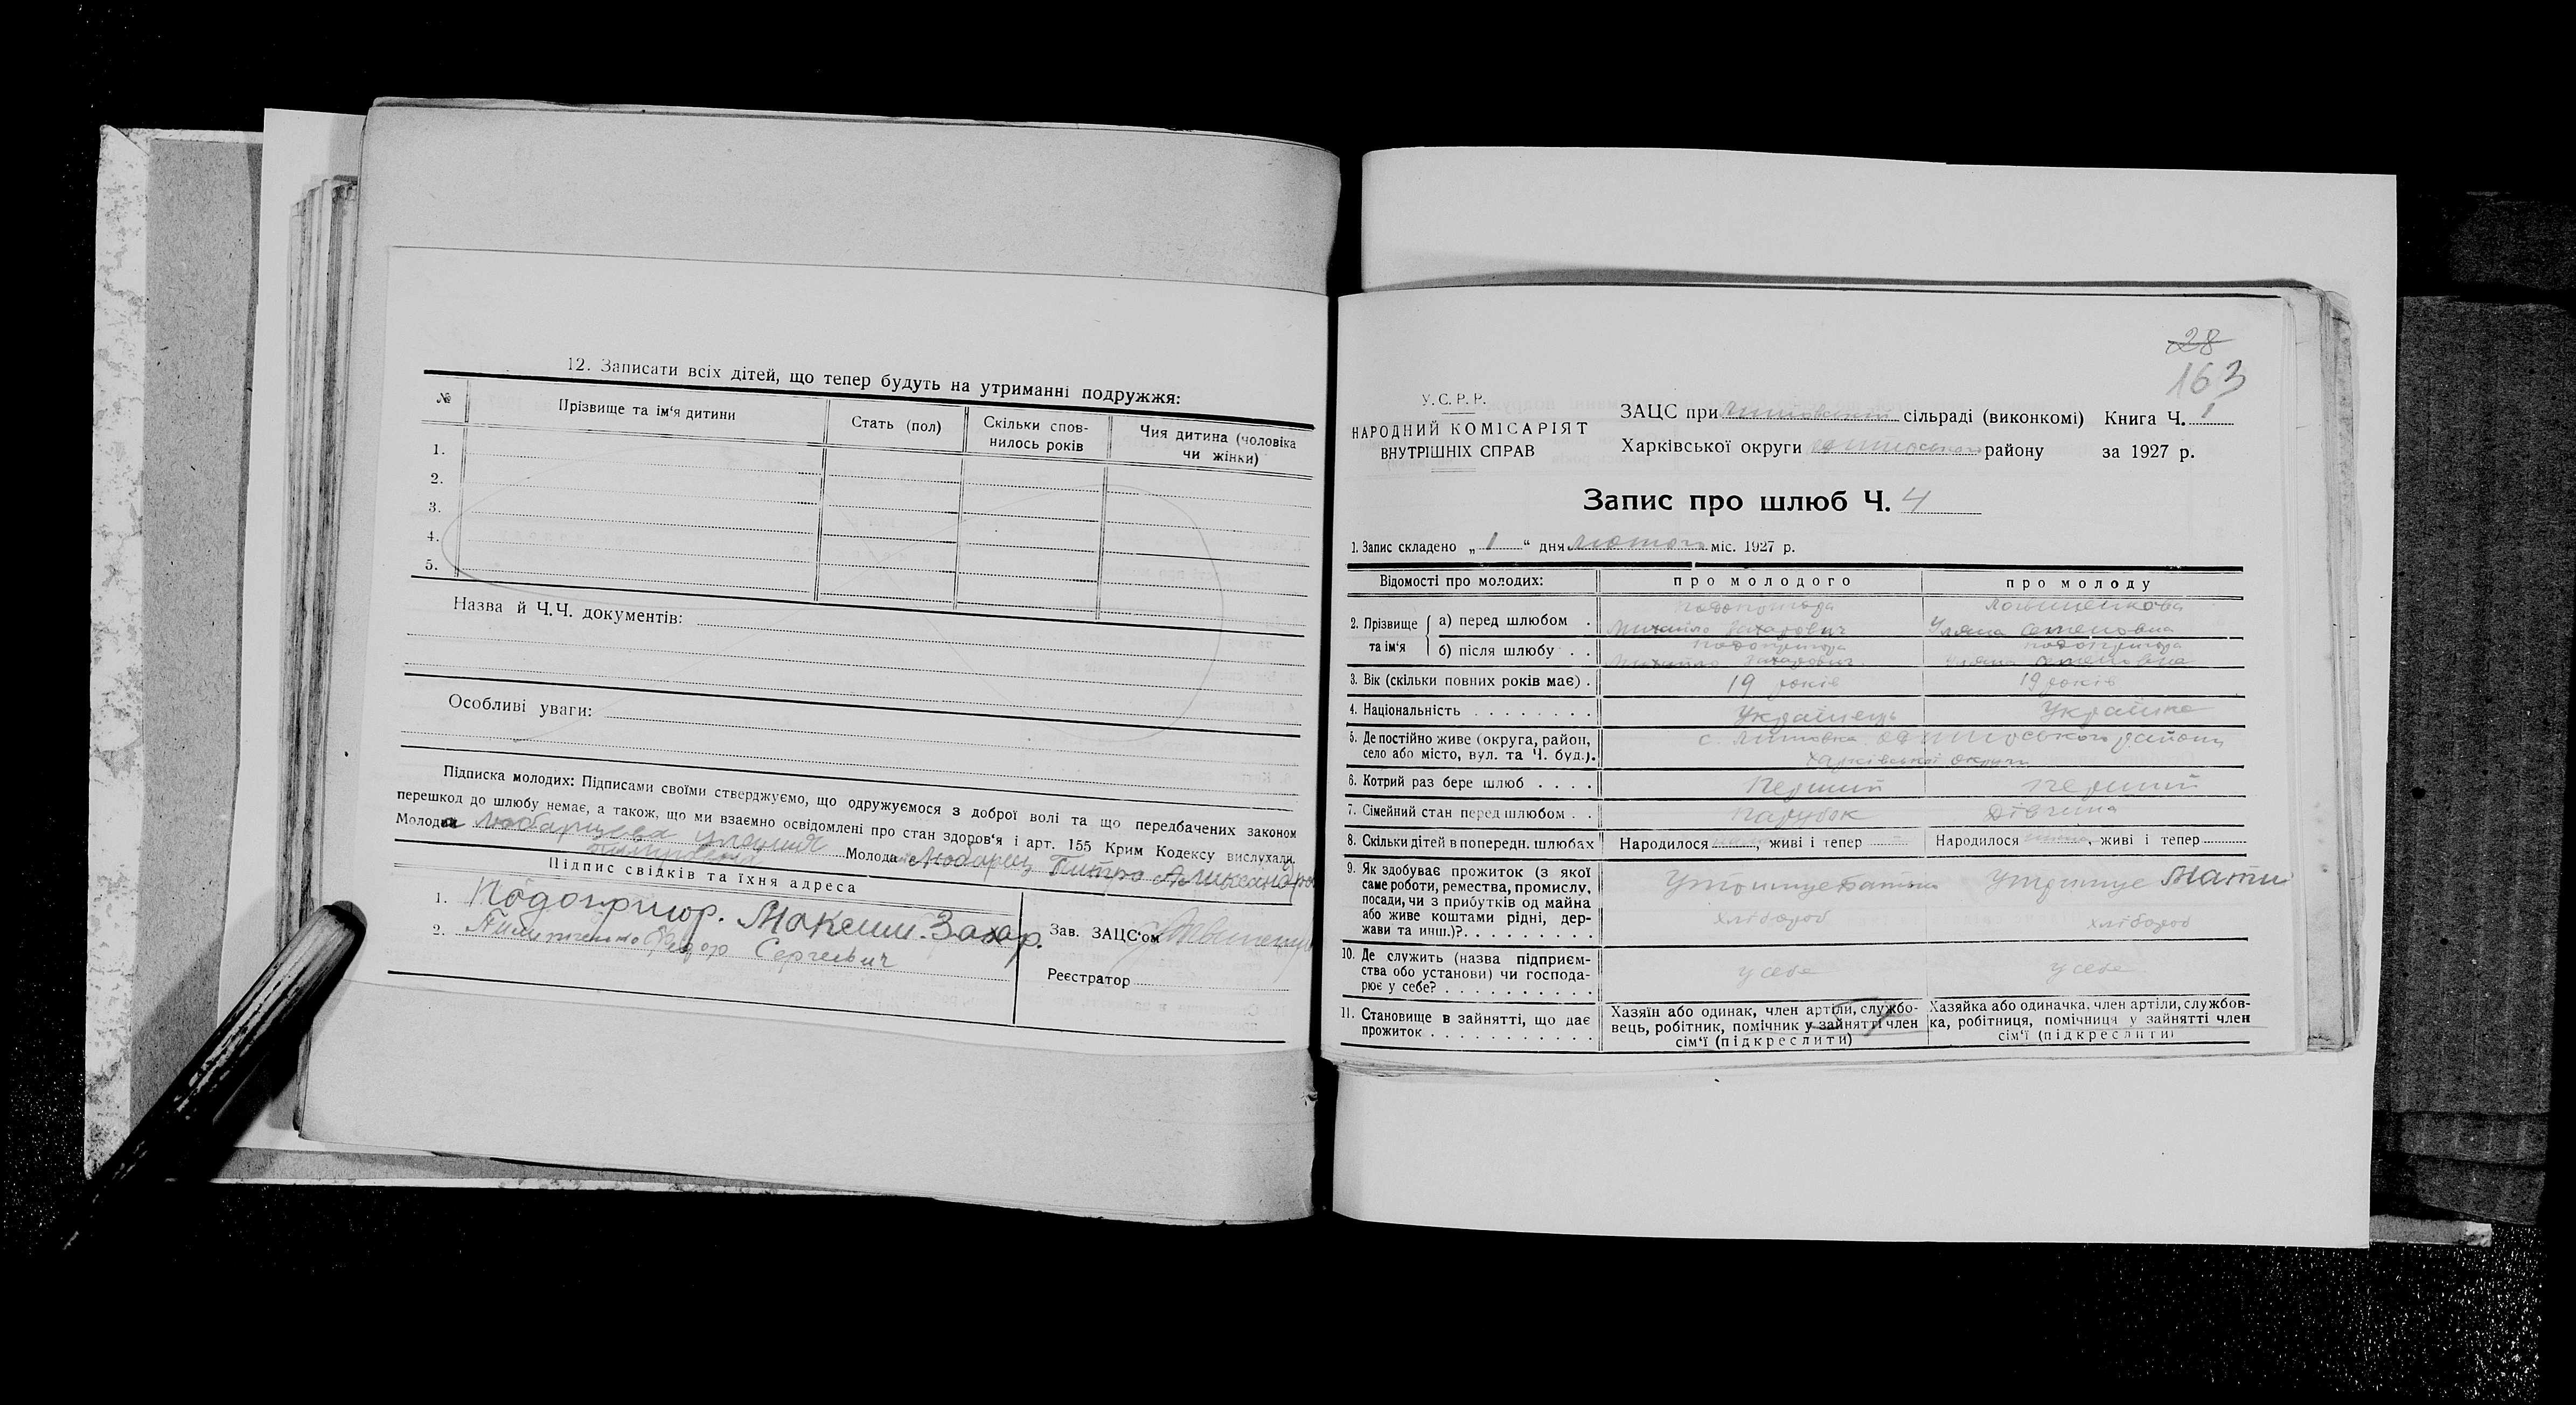 12. Записати всіх дітей, що тепер будуть на утриманні подружжя:
№ Прізвище та ім'я дитини Стать (пол) Скільки спов- нилось років Чия дитина (чоловіка чи жінки)
1.
2.
3.
4.
5.
Назва й Ч.Ч. документів:
Особливі уваги:
Підписка молодих: Підписами своїми стверджуємо, що одружуємося з доброї волі та що передбачених законом
перешкод до шлюбу немає, а також, що ми взаємно освідомлені про стан здоров'я і арт. 155 Крим Кодексу вислухали.
Молода Молода Любарец Питро
Підпис свідків та їхня адреса
1. Подопригор. Максим. Захар.
2. Федор Сергеевич
Зав. ЗАЦС'ом
Реєстратор
28
163
У.С.Р.Р.
НАРОДНИЙ КОМІСАРІЯТ
ВНУТРІШНІХ СПРАВ
ЗАЦС при сільраді (виконкомі) Книга Ч. 1
Харківської округи району за 1927 р.
Запис про шлюб Ч. 4
1. Запис складено „ 1 “ дня лютого міс. 1927 р.
Відомості про молодих: про молодого про молоду
2. Прізвище та ім'я
а) перед шлюбом . Михайло Захарович Уляна Семеновна
б) після шлюбу . . Подопригора Михайло Захарович Подопригора Уляна Семеновна
3. Вік (скільки повних років має) . 19 років 19 років
4. Національність . . . . . . . . Українець Українка
5. Де постійно живе (округа, район,
село або місто, вул. та Ч. буд.). с. району
Харківської округи
6. Котрий раз бере шлюб . . . . Перший перший
7. Сімейний стан перед шлюбом . . Парубок Дівчина
8. Скільки дітей в попередн. шлюбах Народилося , живі і тепер Народилося , живі і тепер
9. Як здобуває прожиток (з якої
саме роботи, ремества, промислу,
посади, чи з прибутків од майна
або живе коштами рідні, дер-
жави та инш.)?. . . . . . . . .
Утримує батько Утримує Мати
хлібороб хлібороб
10. Де служить (назва підприєм-
ства обо установи) чи господа-
рює у себе? . . . . . . . . . .
у себе у себе
11. Становище в зайнятті, що дає
прожиток . . . . . . . . . . .
Хазяїн або одинак, член артіли, службо-
вець, робітник, помічник у зайнятті член
сім'ї (підкреслити)
Хазяйка або одиначка, член артіли, службов-
ка, робітниця, помічниця у зайнятті член
сім'ї (підкреслити)